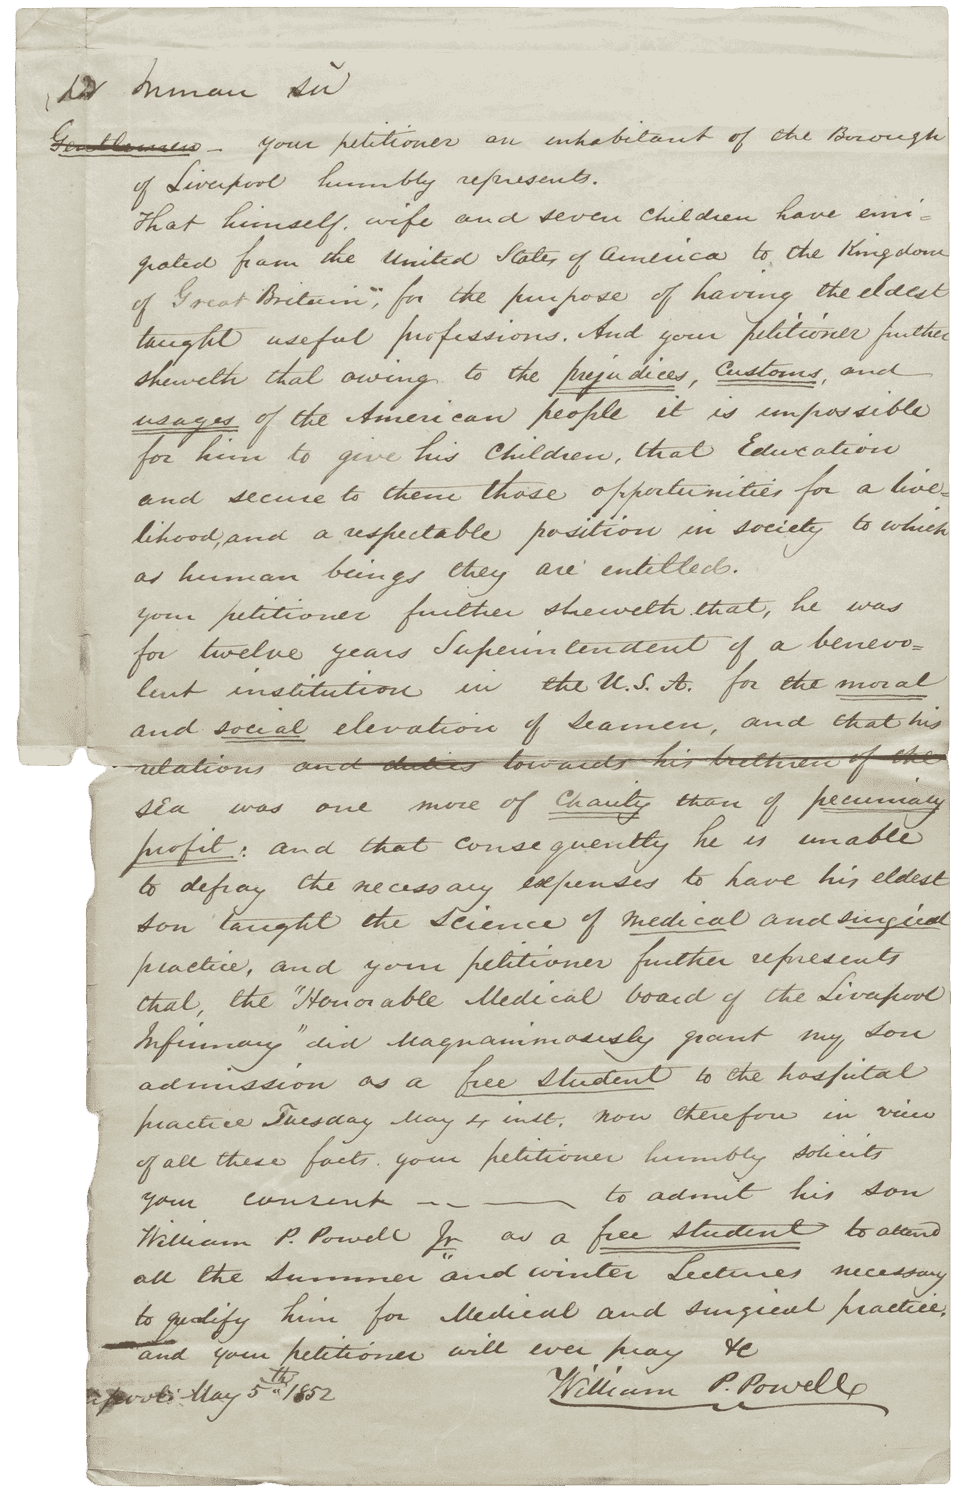 Dr Inman Sir
Gentlemen - your petitioner an inhabitant of the Borough
of Liverpool humbly represents.
That himself, wife and seven children have emi=
grated from the United States of America to the Kingdom
of Great Britain", for the purpose of having the eldest
taught useful professions. And your petitioner further
sheweth that owing to the prejudices, customs, and
usages of the American people it is impossible
for him to give his children, that Education
and secure to them those opportunities for a live=
lihood, and a respectable position in society to which
as human beings they are entitled.
your petitioner further sheweth that, he was
for twelve years Superintendent of a benevo=
lent institution in the U.S.A. for the moral
and social elevation of Seamen, and that his
relations and duties towards his brethren of the
sea was one more of Charity than of pecuniary
profit: and that consequently he is unable
to defray the necessary expenses to have his eldest
son taught the Science of Medical and surgical
practice, and your petitioner further represents
that, the "Honorable Medical board of the Liverpool
Infirmary" did Magnanimously grant my son
admission as a free student to the hospital
practice Tuesday May 4 inst. now therefore in view
of all these facts. your petitioner humbly solicits
your consent - - — to admit his son
William P. Powell Jr as a free student to attend
all the Summer "and winter Lectures necessary
to qualify him for Medical and surgical practice.
and your petitioner will ever pray &c
May 5th 1852 William P. Powell